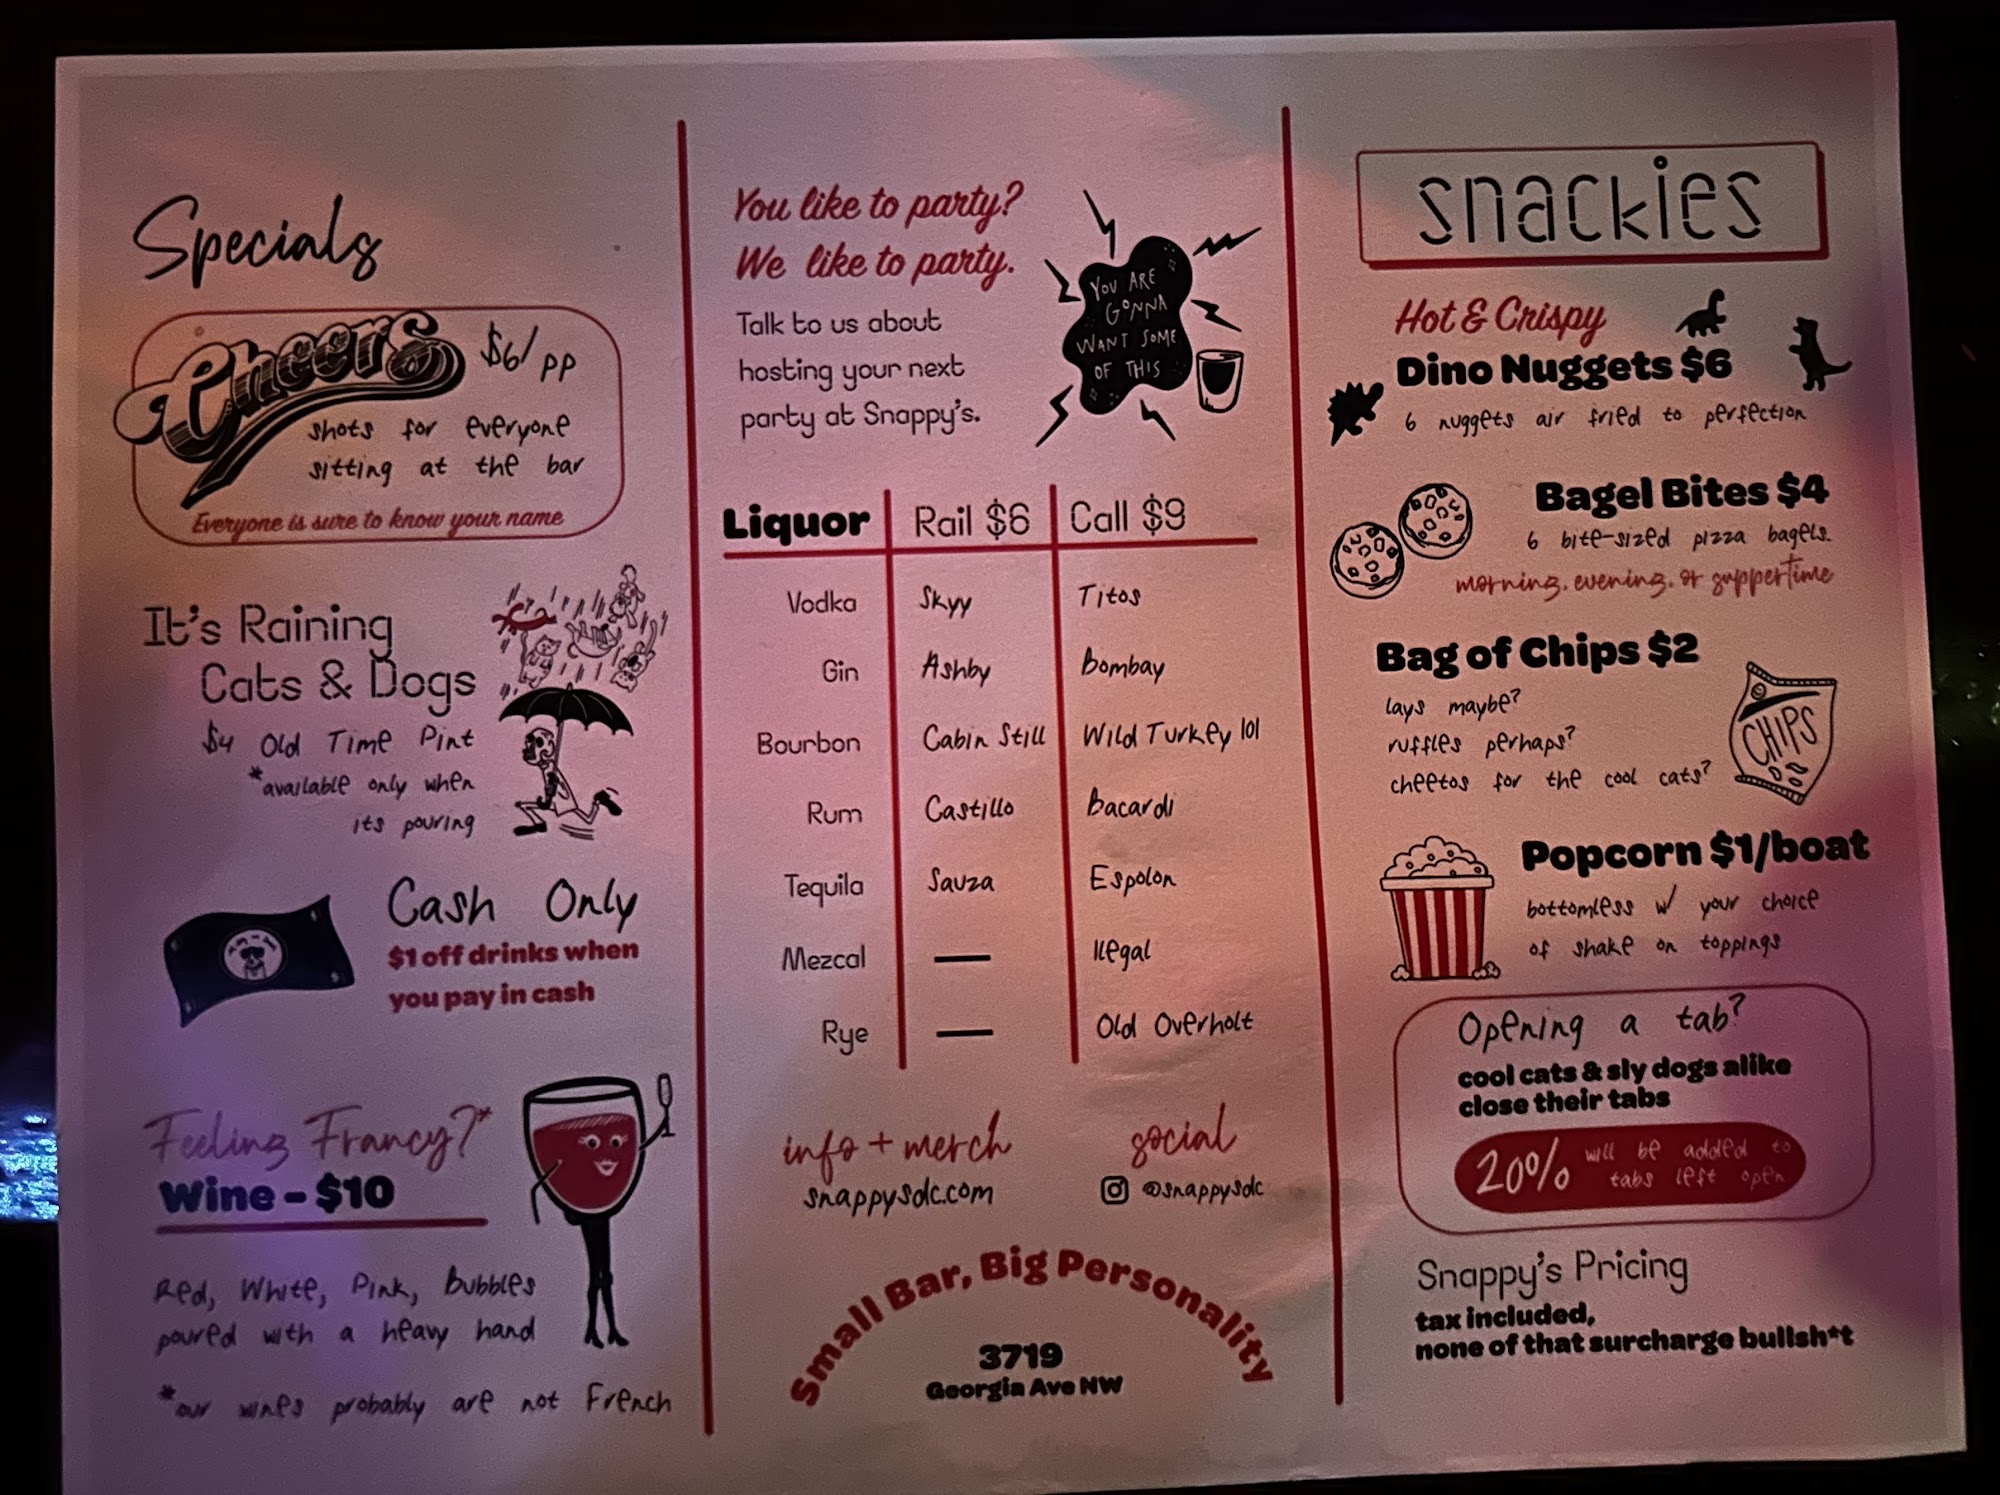 Specials
Cheers $6/pp
shots for everyone
sitting at the bar
Everyone is sure to know your name
It's Raining
Cats & Dogs
$4 Old Time Pint
*available only when
its pouring
Cash Only
$1 off drinks when
you pay in cash
Feeling Francy?*
Wine - $10
Red, White, Pink, Bubbles
poured with a heavy hand
*our wines probably are not French
You like to party?
We like to party.
Talk to us about
hosting your next
party at Snappy's.
YOU ARE
GONNA
WANT SOME
OF THIS
Liquor Rail $6 Call $9
Vodka Skyy Titos
Gin Ashby Bombay
Bourbon Cabin Still Wild Turkey 101
Rum Castillo Bacardi
Tequila Sauza Espolon
Mezcal — Ilegal
Rye — Old Overholt
info + merch
snappysdc.com
social
@snappysdc
Small Bar, Big Personality
3719
Georgia Ave NW
snackies
Hot & Crispy
Dino Nuggets $6
6 nuggets air fried to perfection
Bagel Bites $4
6 bite-sized pizza bagels.
morning, evening, or suppertime
Bag of Chips $2
lays maybe?
ruffles perhaps?
cheetos for the cool cats?
CHIPS
Popcorn $1/boat
bottomless w/ your choice
of shake on toppings
Opening a tab?
cool cats & sly dogs alike
close their tabs
20% will be added to
tabs left open
Snappy's Pricing
tax included,
none of that surcharge bullsh*t